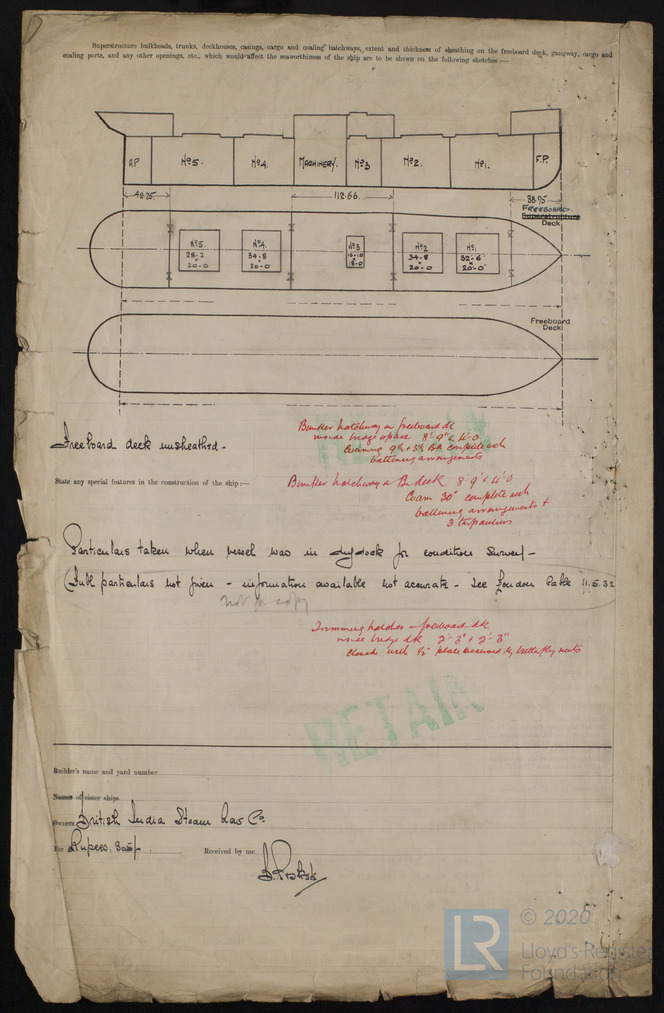 Superstructure bulkheads, trunks, deckhouses, casings, cargo and coaling hatchways, extent and thickness of sheathing on the freeboard deck, gangway, cargo and
coaling ports, and any other openings, etc., which would affect the seaworthiness of the ship are to be shewn on the following sketches:—
A.P. No5. No4. MACHINERY. No3 No2. No1. F.P.
48.25. 112.66. 38.75
FREEBOARD
Superstructure
Deck
No5 No4. No3 No2 No1
28-2 34-8 10-10 34-8 32-6
20-0 20-0 18-0 20-0 20-0
Freeboard
Deck
Bunker hatchway on freeboard dk
inside bridge space 8'-9" x 4'-0
Coaming 9" + 3½ BA complete with
battening arrangements
Freeboard deck unsheathed -
State any special features in the construction of the ship:—
Bunker hatchway on Br deck 8'-9" x 4'-0
Coam 30" complete with
battening arrangements +
3 tarpaulins
Particulars taken when vessel was in drydock for condition Survey -
(Full particulars not given - information available not accurate - See London Cable 11.5.32
not to copy
Trimming hatches on freeboard dk
inside bridge dk 2'-3" + 2'-3"
closed with ½" plate secured by butterfly nuts
RETAIN
Builder's name and yard number
Names of sister ships
Owners British India Steam Nav Co.
Fee Rupees. 305/-. Received by me
LR © 2020
Lloyd's Register
Foundation